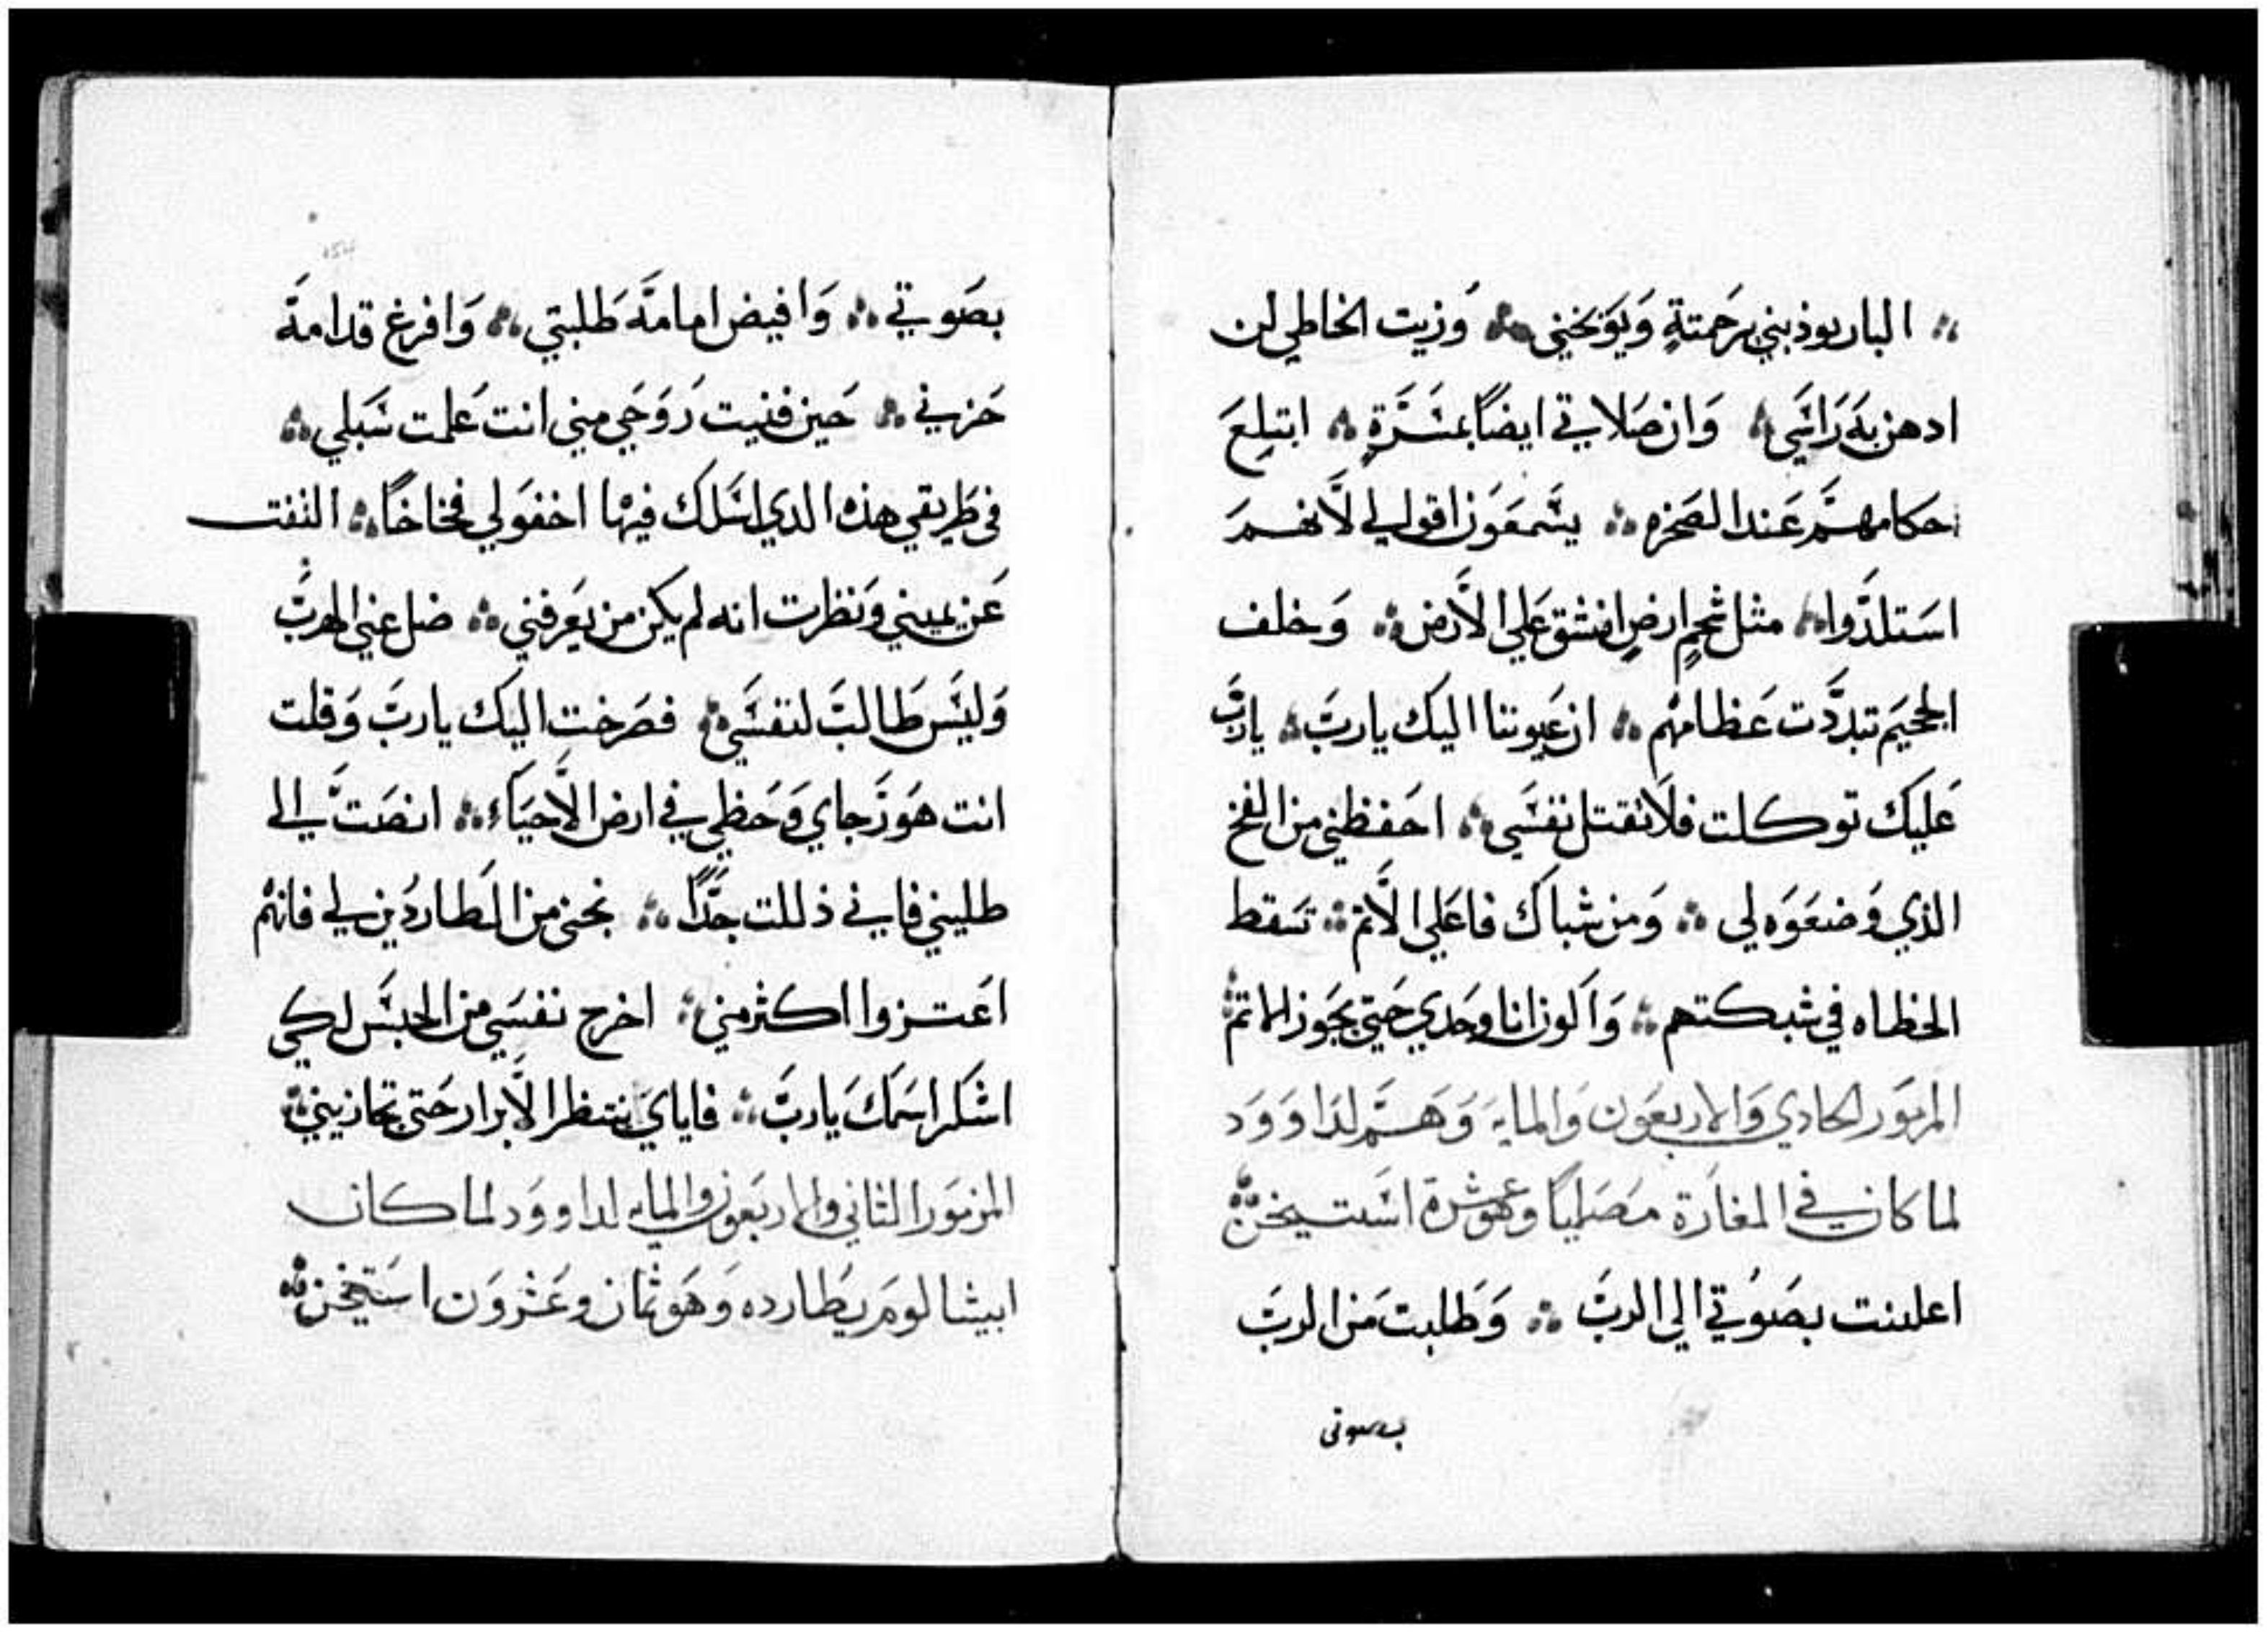 ؞ البار يوذبني برحمتةٍ وَيوَبخني ؞ وَزيت الخاطي لن
ادهن بهَ رَاسَي ؞ وَان صَلاتي ايضاً بمسَرَّةٍ ؞ ابتلِعَ
حكامهمَّ عَند الصَخره ؞ يسَّمعَوَن اقوالي لاَّنهمَ
اسَتلذَّوا ؞ مثل شحمٍ ارضٍ انشق عَلي الاَّرض ؞ وَخلف
الجحيَم تبدَّدت عَظامهم ؞ ان عَيوننا اليك يا ربَ ؞ يا ربَّ
عَليَك توكلت فلاَ تقتل نفسَي ؞ احَفظني من الفخ
الذي وَضعَوَه لي ؞ وَمن شباكَ فاعَلي الاَّثم ؞ تسَقط
الخطاه في شبكتهم ؞ وَاكَون انا وحَدي حَتي يجَوز الاثم
المزموَر الحادي وَالاربعَون وَالمايهَ وَهمَّ لدَاوَوَد
لما كان في المغارَة مصَلياً وعَوشرة اسَتيخن ؞
اعلنت بصَوتي الي الربَّ ؞ وَطلبتَ مَن الربَ
بصوتي
بصَوتي ؞ وَافيض امامهَ طَلبتي ؞ وَافرغ قدامهَ
حَزني ؞ حَين فنيت رَوَحَي مني انت عَلمت سَبلي ؞
في طَريقي هذه الدي اسَلك فيهَا اخفوَا لي فخاخاً ؞ التفت
عَن يميني وَنظرت انه لم يكن من يعَرفني ؞ ضل عني المهربَّ
وَليسَّ طَالبَ لنفسَّي ؞ فصَرخت اليك يا ربَّ وَقلت
انت هَوَ رَجاي وَحَظي في ارض الاَّحيَاء ؞ انصَتَّ الي
طلبني فاني ذللت جدَّاً ؞ نجني من الطَاردُين لي فانهم
اعَتزوا اكثر مني ؞ اخرج نفسَي من الحبسَّ لكي
اشكر اسَمكَ يا ربَّ ؞ فاياي ينتظر الاَّبرار حَتي تجازيني ؞
المزموَر الثاني والاربعَون والمايه لداووَد لما كان
ابيشالومَ يطَارده وَهَو ثمان وعَشروَن اسَتيخن ؞